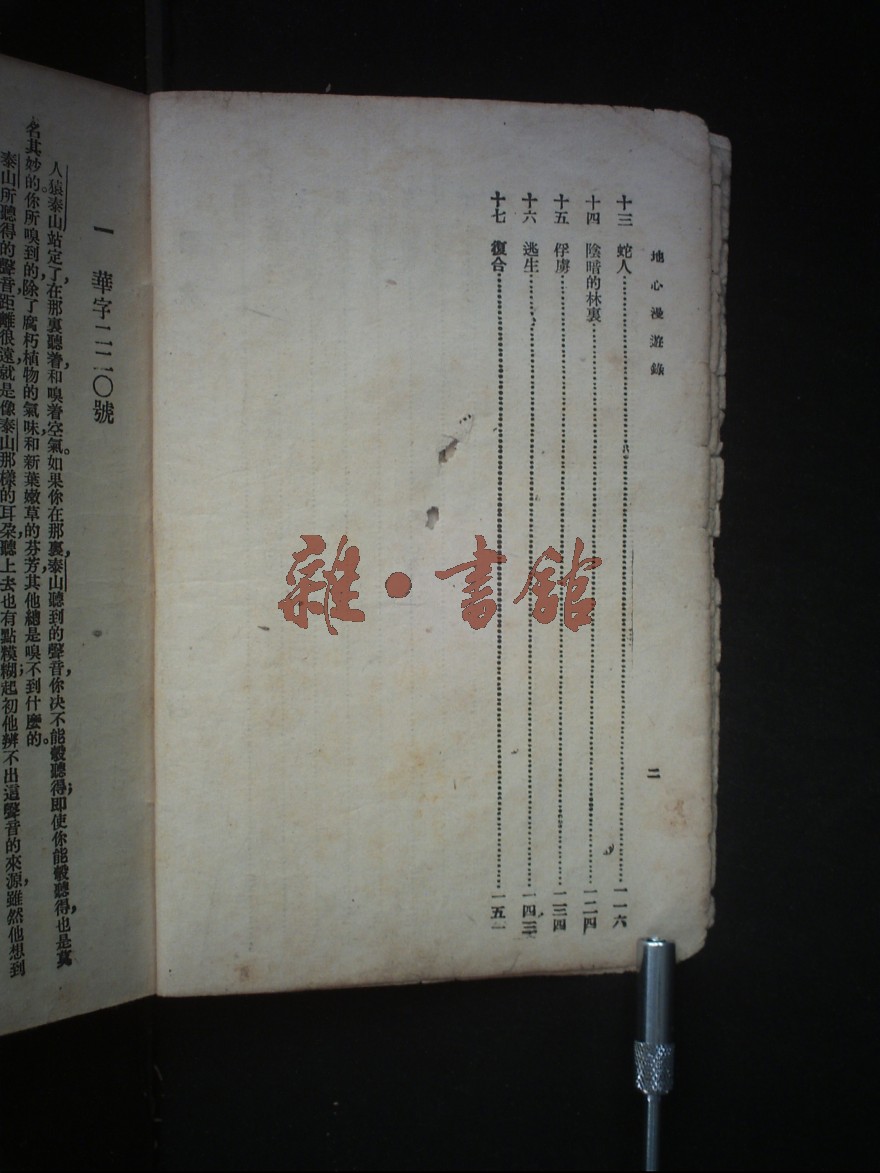 地心漫遊錄
二
十三 蛇人……一一六
十四 陰暗的林裏……一二四
十五 俘虜……一三四
十六 逃生……一四三
十七 復合……一五一
雜•書館
一 華字二二〇號
人猿泰山站定了,在那裏聽着和嗅着空氣。如果你在那裏,泰山聽到的聲音,你决不能彀聽得;即使你能彀聽得,也是莫
名其妙的。你所嗅到的,除了腐朽植物的氣味,和新葉嫩草的芬芳,其他總是嗅不到什麼的。
泰山所聽得的聲音,距離很遠,就是像泰山那樣的耳朶,聽上去也有點糢糊;起初他辨不出這聲音的來源,雖然他想到